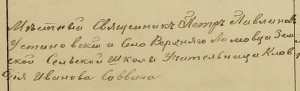 Мѣстный Священникъ Петръ Павлинов
Устиновскій и село Верхняго Ломовца Зем
ской Сельской Школы Учительница Клав
дія Иванова Саввина